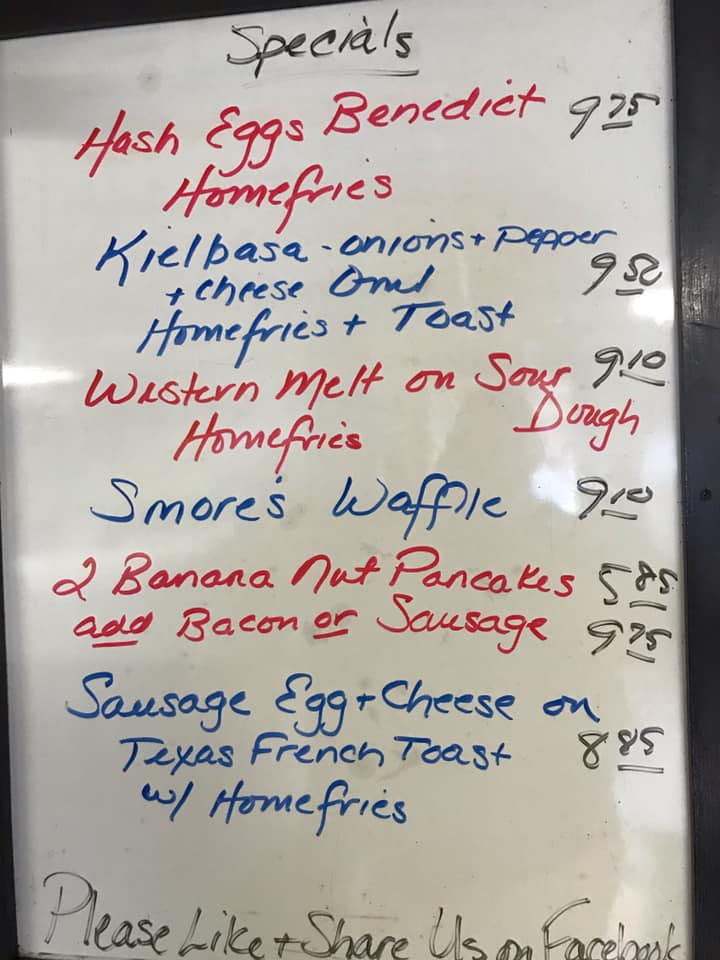 Specials
Hash Eggs Benedict 9 75
Homefries
Kielbasa - onions + pepper
+ cheese Oml 9 50
Homefries + Toast
Western Melt on Sour 9.10
Dough
Homefries
Smore's Waffle 9.10
2 Banana Nut Pancakes 5 85
add Bacon or Sausage 9 75
Sausage Egg + Cheese on
Texas French Toast 8 85
w/ Homefries
Please Like + Share Us on Facebook